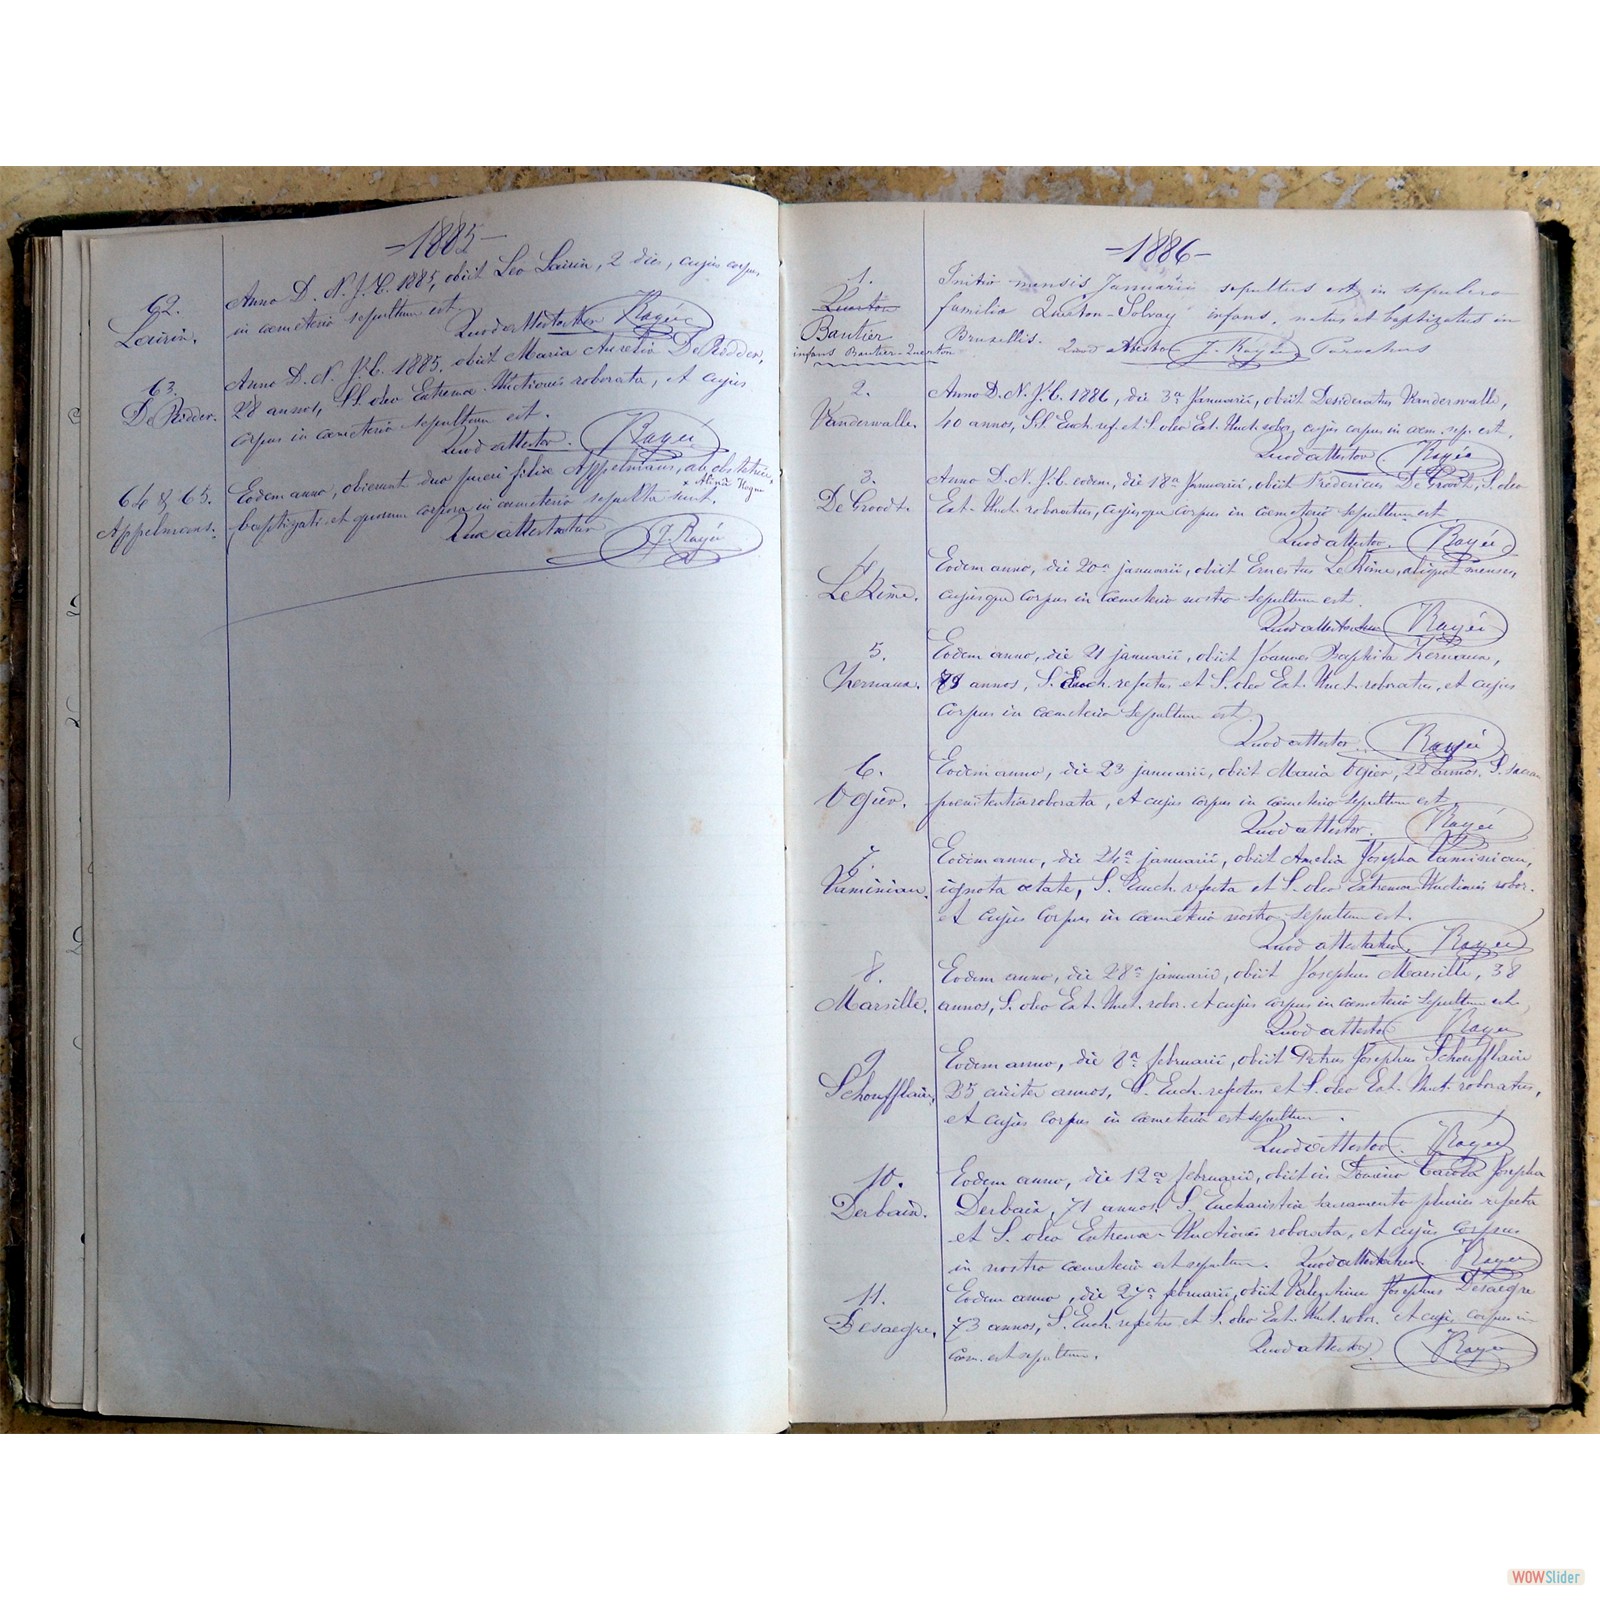 -1885-
62.
Anno D. N. J. C. 1885, obiit Leo Loirin, 2 dies, cujus corpus
Loirin.
in cœmeterio sepultum est.
Quod attestor Rayée
63.
Anno D. N. J. C. 1885. obiit Maria Aurelia De Ridder,
De Ridder.
28 annos, S. oleo Extremæ Unctionis roborata, et cujus
corpus in cœmeterio sepultum est.
Quod attestor. Rayée
64 & 65.
Eodem anno, obierunt duo pueri filiæ Appelmans, ab obstetrice,
x Alinâ
Appelmans.
baptizati et quorum corpora in cœmeterio sepulta sunt.
J. Rayée
-1886-
1.
Initio mensis Januarii sepultus est in sepulcro
Quarton
familiæ Quarton-Solvay infans, natus et baptizatus in
Bautier
Bruxellis. Quod attestor J. Rayée Parochus
infans Bautier-Quarton
2.
Anno D. N. J. C. 1886, die 3a Januarii, obiit Desideratus Vanderwalle,
Vanderwalle.
40 annos, S. Euch. ref. et S. oleo Ext. Unct. robor. cujus corpus in cœm. sep. est.
Quod attestor Rayée
3.
Anno D. N. J. C. eodem, die 18a Januarii, obiit Fredericus De Groodt, S. oleo
De Groodt.
Ext. Unct. roboratus, cujusque corpus in cœmeterio sepultum est.
Quod attestor. Rayée
4
Eodem anno, die 20a januarii, obiit Ernestus LeKime, aliquot menses,
LeKime.
cujusque corpus in cœmeterio nostro sepultum est.
Rayée
5.
Eodem anno, die 21 januarii, obiit Joannes Baptista
79 annos, S. Euch. refectus et S. oleo Ext. Unct. roboratus, et cujus
corpus in cœmeterio sepultum est.
Quod attestor. Rayée
6.
Eodem anno, die 23 januarii, obiit Maria Ogier, 22 annos. S.
Ogier.
pœnitentia roborata, et cujus corpus in cœmeterio sepultum est
Quod attestor. Rayée
7.
Eodem anno, die 24a januarii, obiit Amelia Josepha
ignota ætate, S. Euch. refecta et S. oleo Extremæ Unctionis robor.
et cujus corpus in cœmeterio nostro sepultum est.
Rayée
8.
Eodem anno, die 28a januarii, obiit Josephus Marsille, 38
Marsille.
annos, S. oleo Ext. Unct. robor. et cujus corpus in cœmeterio sepultum est.
Quod attestor Rayée
9.
Eodem anno, die 8a februarii, obiit Petrus Josephus Schoufflaire
Schoufflaire,
25 annos, S. Euch. refectus et S. oleo Ext. Unct. roboratus,
et cujus corpus in cœmeterio est sepultum.
Quod attestor Rayée
10.
Eodem anno, die 12a februarii, obiit in Domino Carola Josepha
Derbaix.
Derbaix, 71 annos, S. Eucharistiæ sacramento pluries refecta
et S. oleo Extremæ Unctionis roborata, et cujus corpus
in nostro cœmeterio est sepultum. Rayée
11.
Eodem anno, die 27a februarii, obiit Josephus Desaegre
Desaegre.
73 annos, S. Euch. refectus et S. oleo Ext. Unct. robor. et cujus corpus in
cœm. est sepultum.
Quod attestor Rayée
WOWSlider